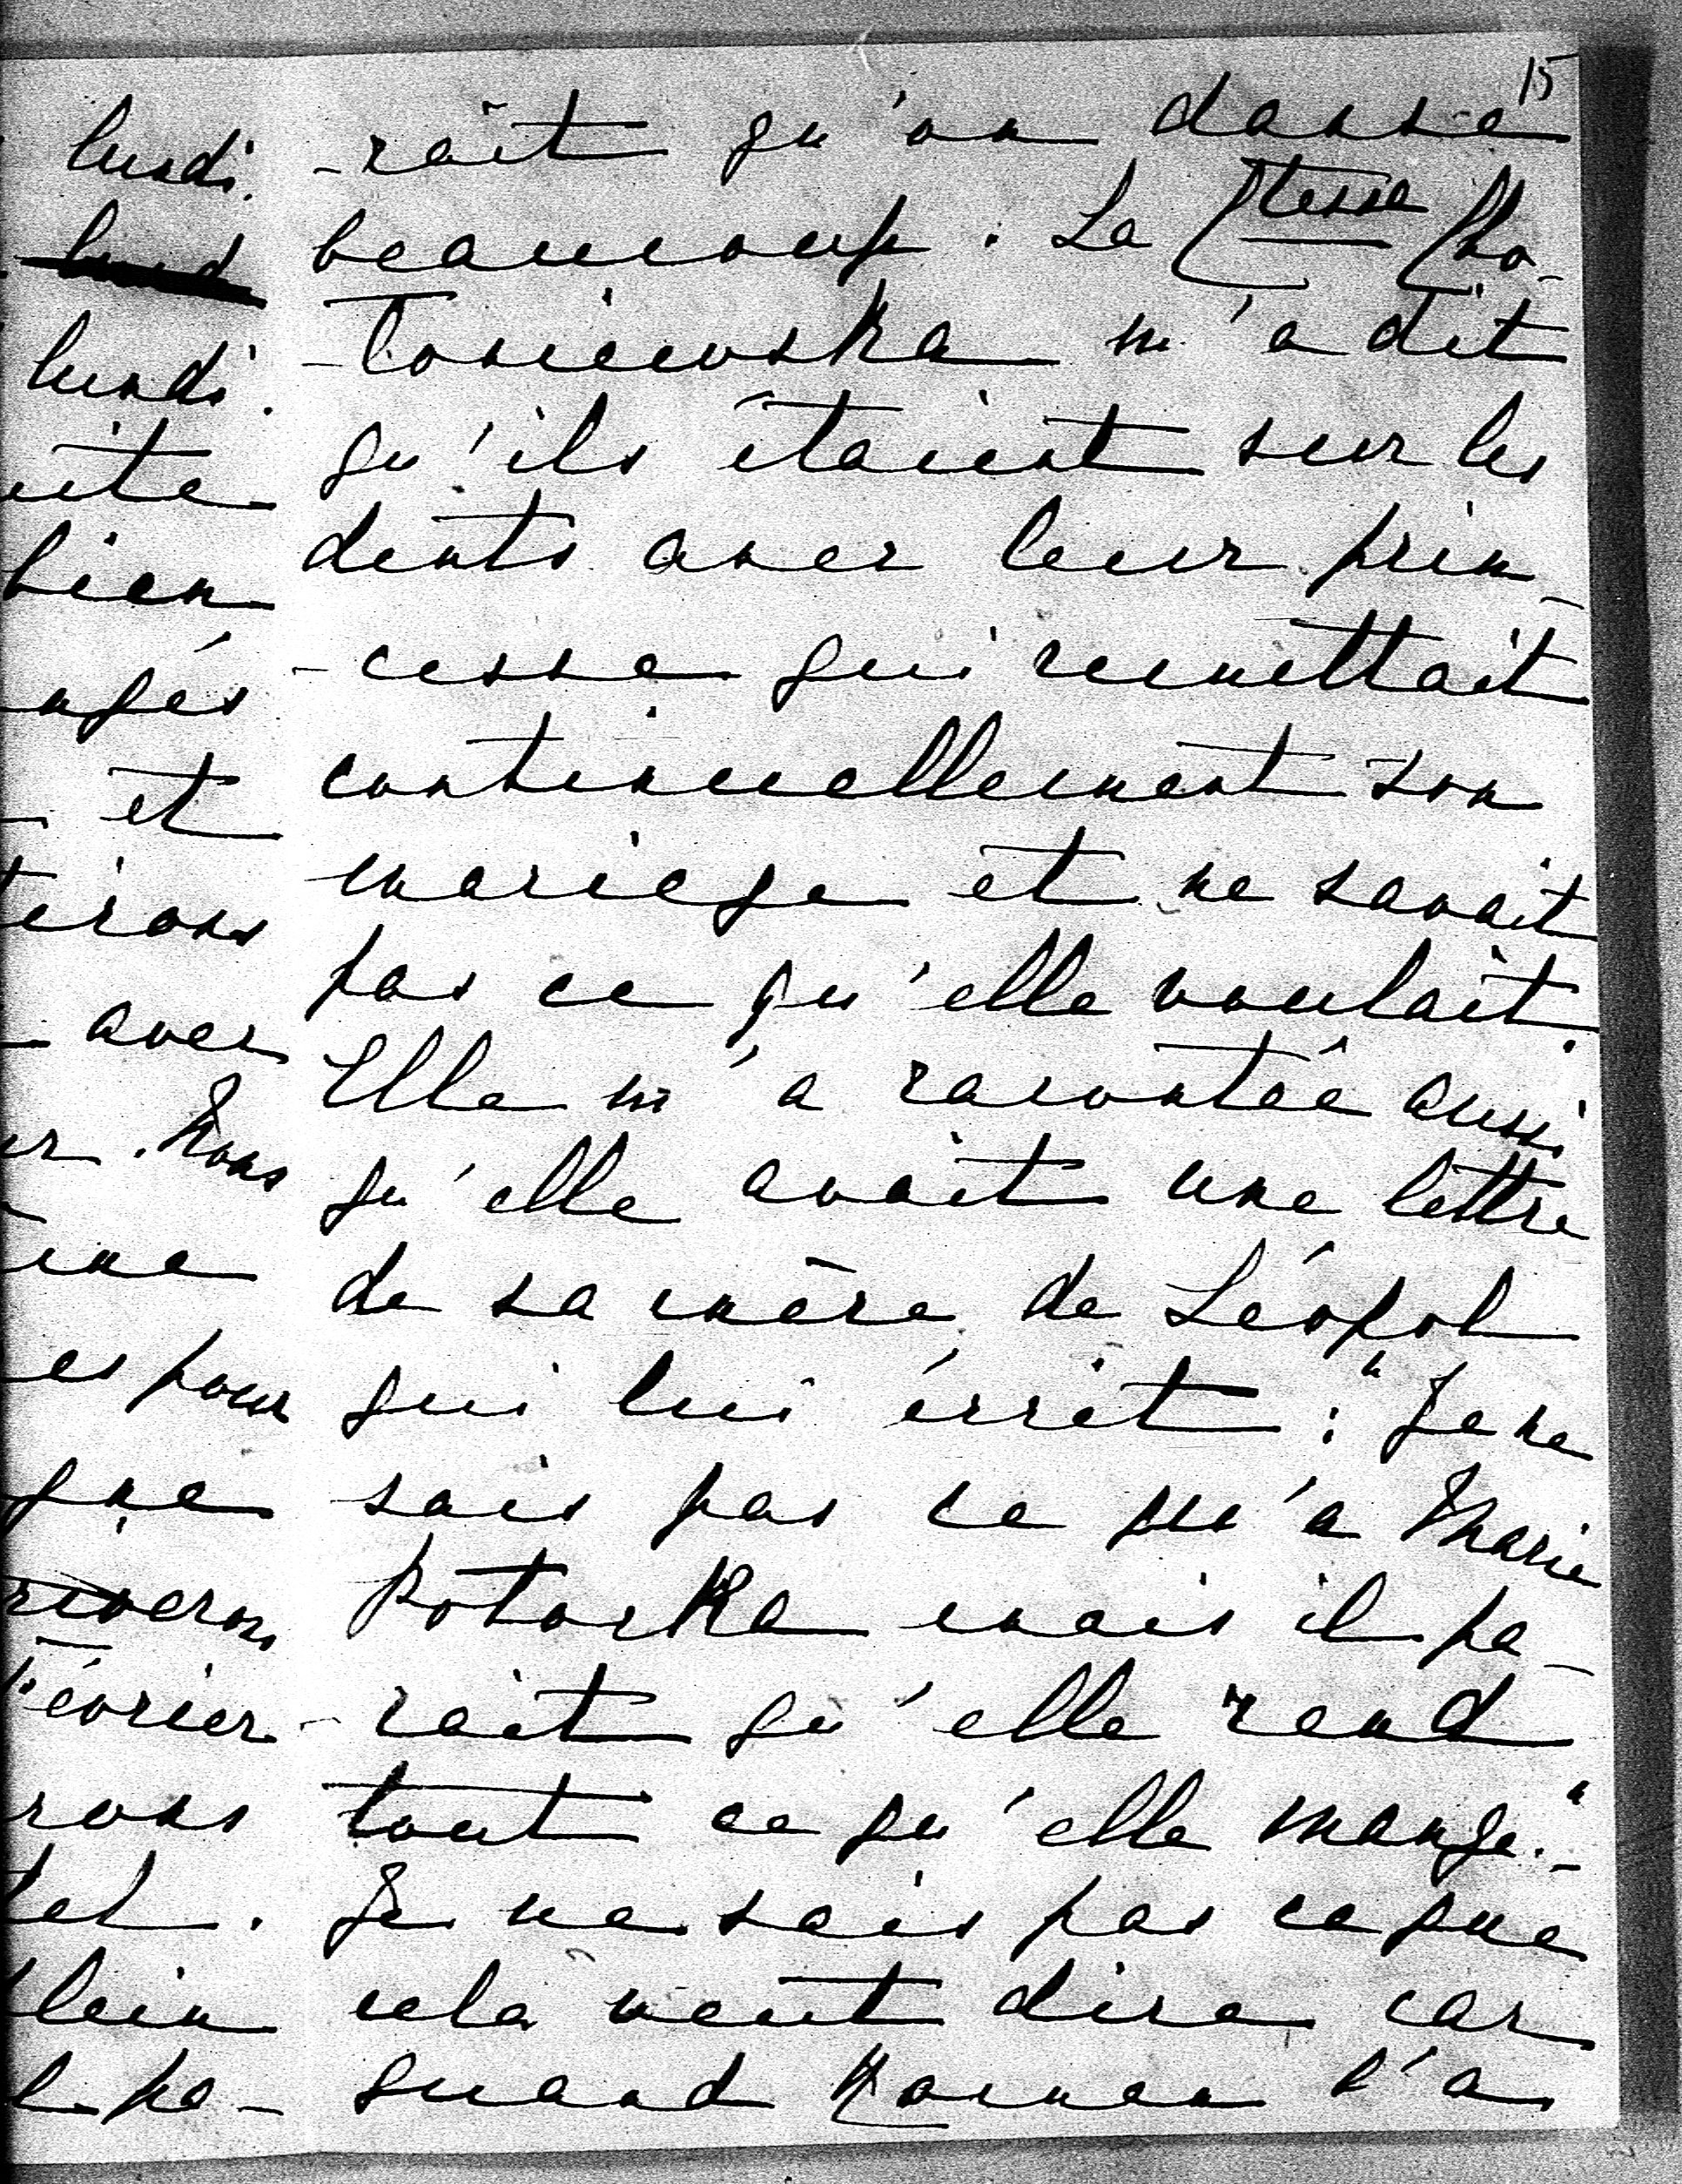 15
lundi.
lund
lundi.
uite
bien
ngés
et
tirons
avec
ur. Nous
une
es pour
que
riverons
Février
rons
tel.
lein
l pa-
-rait qu'on danse
beaucoup. La Ctesse Cho-
-loniewska m'a dit
qu'ils étaient sur les
dents avec leur prin-
-cesse qui remettait
continuellement son
mariage et ne savait
pas ce qu'elle voulait.
Elle m'a racontée aussi
qu'elle avait une lettre
de sa mère, de Léopol
qui lui écrit: "Je ne
sais pas ce qu'a Marie
Potocka mais il pa-
-rait qu'elle rend
tout ce qu'elle mange."-
Je ne sais pas ce que
cela veut dire car
quand Maman l'a